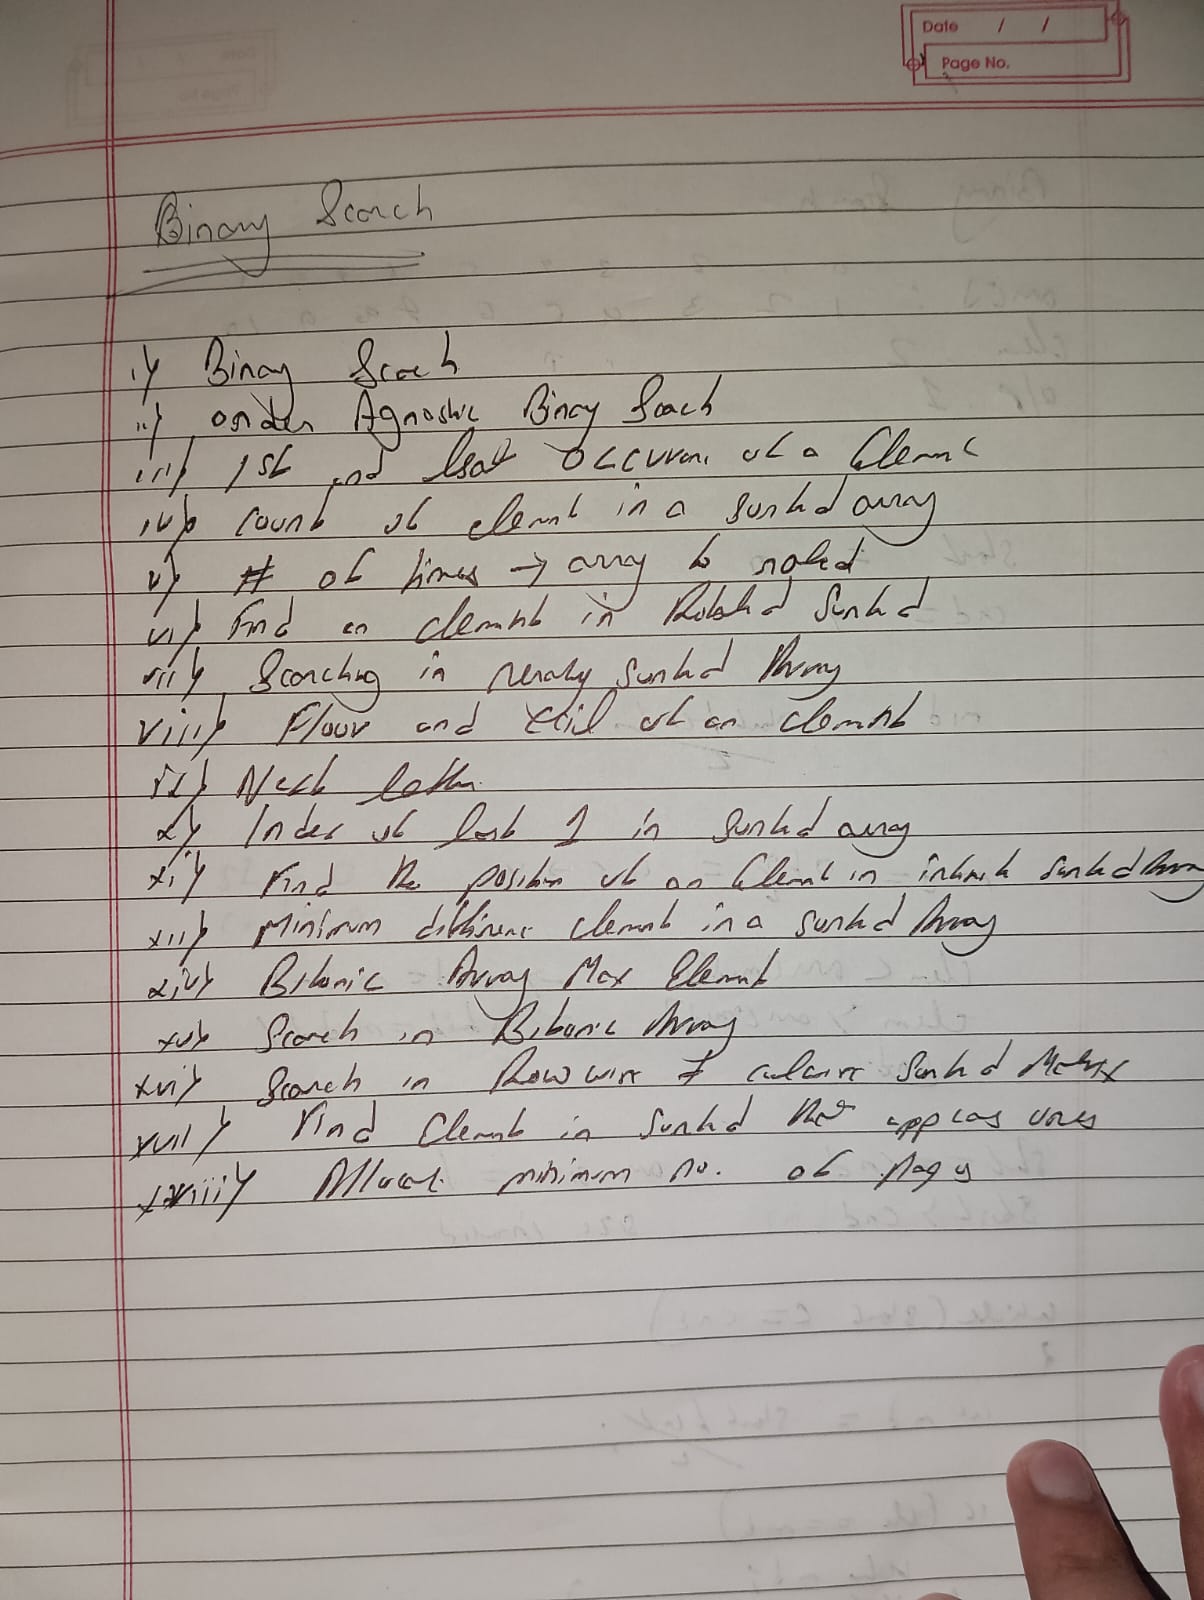 Date / /
Page No.
Binary Search
i) Binary Search
ii) order Agnostic Binary Search
iii) 1st and last Occurrence of a Element
iv) count of element in a sorted array
v) # of times → array is rotated
vi) Find an element in Rotated Sorted
vii) Searching in nearly sorted Array
viii) Floor and Ceil of an element
ix) Next letter
x) Index of last 1 in sorted array
xi) Find the position of an Element in infinite sorted Array
xii) Minimum difference element in a sorted Array
xiv) Bitonic Array Max Element
xv) Search in Bitonic Array
xvi) Search in Row wise + column sorted Matrix
xvii) Find Element in sorted that appears once
xviii) Allocate minimum no. of pages